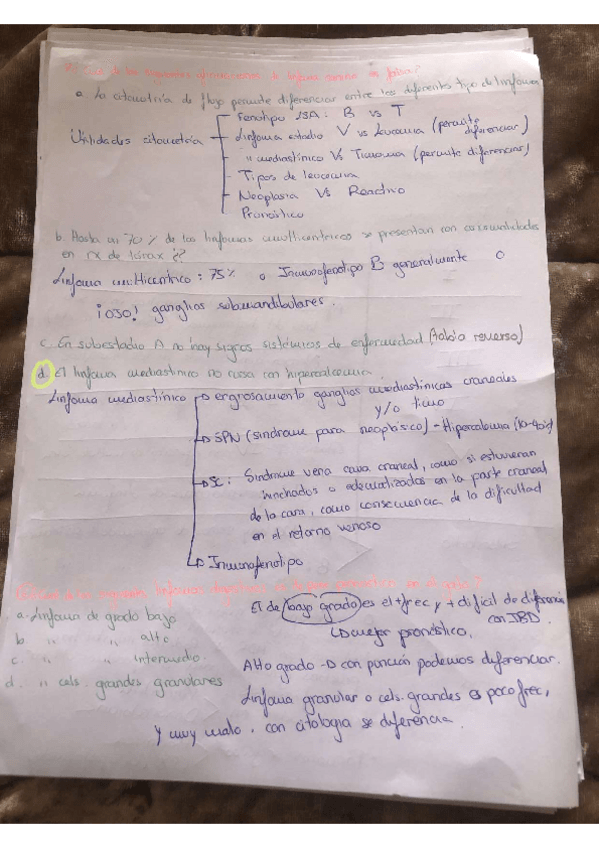 ¿Cuál de las siguientes afirmaciones de linfoma canino es falsa?
a. La citometría de flujo permite diferenciar entre los diferentes tipo de linfomas
Utilidades citometría
Fenotipo B vs T
Linfoma estadio V vs Leucemia (permite diferenciar)
" mediastínico Vs Timoma (permite diferenciar)
Tipos de leucemia
Neoplasia VS Reactivo
Pronóstico
b. Hasta un 70% de los linfomas multicéntricos se presentan con anormalidades
en rx de tórax ¿?
Linfoma multicéntrico: 75% o Inmunofenotipo B generalmente o
¡oso! ganglios submandibulares.
c. En subestadio A no hay signos sistémicos de enfermedad (tabla reverso)
d. El linfoma mediastínico no cursa con hipercalcemia.
Linfoma mediastínico
engrosamiento ganglios mediastínicos craneales
y/o timo
SPN (síndrome para neoplásico) - Hipercalcemia
SC: Síndrome vena cava craneal, como si estuvieran
hinchados o edematizados en la parte craneal
de la cara, como consecuencia de la dificultad
en el retorno venoso
Inmunofenotipo
siguientes linfomas digestivos mejor pronóstico en el gato?
a. Linfoma de grado bajo
b " " alto
c. " " intermedio.
d. " cels. grandes granulares
El de bajo grado es el + frec y + difícil de diferenciar
con IBD.
mejor pronóstico.
Alto grado → con punción podemos diferenciar.
Linfoma granular o cels. grandes es poco frec,
y muy malo, con citología se diferencia.